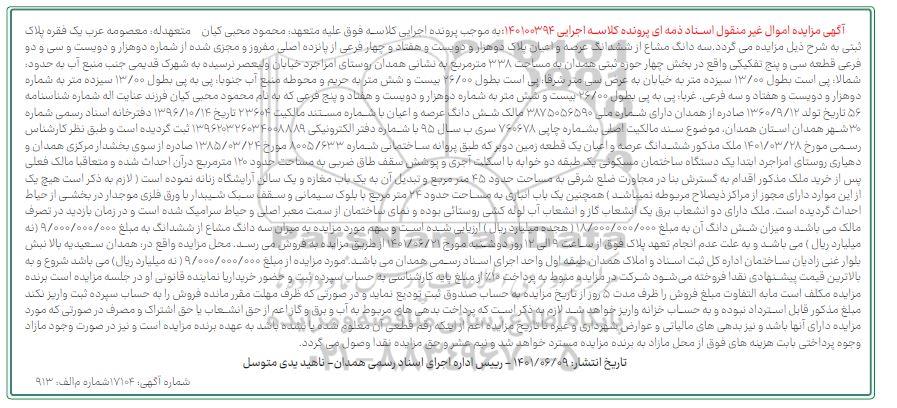 آگهی مزایده اموال غیر منقول اسناد ذمه ای پرونده کلاسه اجرایی ۱۴۰۱۰۰۳۹۴:به موجب پرونده اجرایی کلاسه فوق علیه متعهد: محمود محبی کیان متعهدله: معصومه عرب یک فقره پلاک
ثبتی به شرح ذیل مزایده می گردد.سه دانگ مشاع از ششدانگ عرصه و اعیان پلاک دوهزار و دویست و هفتاد و چهار فرعی از پانزده اصلی مفروز و مجزی شده از شماره دوهزار و دویست و سی و دو
فرعی قطعه سی و پنج تفکیکی واقع در بخش چهار حوزه ثبتی همدان به مساحت ۳۳۸ مترمربع به نشانی همدان روستای امزاجرد خیابان ولیعصر نرسیده به شهرک قدیمی جنب منبع آب به حدود:
شمالا: پی است بطول ۱۳/۰۰ سیزده متر به خیابان به عرض سی متر شرقا: پی است بطول ۲۶/۰۰ بیست و شش متر به حریم و محوطه منبع آب جنوبا: پی به پی بطول ۱۳/۰۰ سیزده متر به شماره
دوهزار و دویست و هفتاد و سه فرعی. غربا: پی به پی بطول ۲۶/۰۰ بیست و شش متر به شماره دوهزار و دویست و هفتاد و پنج فرعی که به نام محمود محبی کیان فرزند عنایت اله شماره شناسنامه
۵۶ تاریخ تولد ۱۳۶۰/۹/۱۲ صادره از همدان دارای شماره ملی ۳۸۷۵۰۵۶۵۹۰ مالک شش دانگ عرصه و اعیان با شماره مستند مالکیت ۲۳۶۰۴ تاریخ ۱۳۹۶/۱۰/۱۴ دفترخانه اسناد رسمی شماره
۳۰ شهر همدان استان همدان، موضوع سند مالکیت اصلی بشماره چاپی ۷۶۰۶۷۸ سری ب سال ۹۵ با شماره دفتر الکترونیکی ۱۳۹۶۲۰۳۲۶۰۳۴۰۰۸۸۸۹ ثبت گردیده است و طبق نظر کارشناس
رسمی مورخ ۱۴۰۱/۰۳/۲۸ ملک مذکور ششدانگ عرصه و اعیان یک قطعه زمین دوبر که طبق پروانه ساختمانی شماره ۸۰۰۵/۶۳۳ مورخ ۱۳۸۵/۰۳/۲۴ صادره از سوی بخشدار مرکزی همدان و
دهیاری روستای امزاجرد ابتدا یک دستگاه ساختمان مسکونی یک طبقه دو خوابه با اسکلت آجری و پوشش سقف طاق ضربی به مساحت حدود ۱۲۰ مترمربع درآن احداث شده و متعاقبا مالک فعلی
پس از خرید ملک مذکور اقدام به گسترش بنا در مجاورت ضلع شرقی به مساحت حدود ۴۵ متر مربع و تبدیل آن به یک باب مغازه و یک سالن آرایشگاه زنانه نموده است ( لازم به ذکر است هیچ یک
از این موارد دارای مجوز از مراکز ذیصلاح مربوطه نمیباشد ) همچنین یک باب انباری به مساحت حدود ۲۴ متر مربع با بلوک سیمانی و سقف سبک شیبدار با ورق فلزی موجدار در بخشی از حیاط
احداث گردیده است. ملک دارای دو انشعاب برق یک انشعاب گاز و انشعاب آب لوله کشی روستائی بوده و نمای ساختمان از سمت معبر اصلی و حیاط سرامیک شده است و در زمان بازدید در تصرف
مالک می باشد و میزان شش دانگ آن به مبلغ ۱۸/۰۰۰/۰۰۰/۰۰۰ ( هجده میلیارد ریال ) ارزیابی شده است و سهم مورد مزایده به میزان سه دانگ مشاع از ششدانگ به مبلغ ۹/۰۰۰/۰۰۰/۰۰۰ (نه
میلیارد ریال ) می باشد و به علت عدم انجام تعهد پلاک فوق از ساعت ۹ الی ۱۲ روز دوشنبه مورخ ۱۴۰۱/۰۶/۲۱ از طریق مزایده به فروش می رسد. محل مزایده واقع در: همدان سعیدیه بالا نبش
بلوار غنی زادیان ساختمان اداره کل ثبت اسناد و املاک همدان طبقه اول واحد اجرای اسناد رسمی همدان می باشد. مورد مزایده از مبلغ ۹/۰۰۰/۰۰۰/۰۰۰ ( نه میلیارد ریال) می باشد شروع و به
بالاترین قیمت پیشنهادی نقدا فروخته می‌شود شرکت در مزایده منوط به پرداخت ۱۰٪ از مبلغ پایه کارشناسی به حساب سپرده ثبت و حضور خریداریا نماینده قانونی او در جلسه مزایده است برنده
مزایده مکلف است مابه التفاوت مبلغ فروش را ظرف مدت ۵ روز از تاریخ مزایده به حساب صندوق ثبت تودیع نماید و در صورتی که ظرف مهلت مقرر مانده فروش را به حساب سپرده ثبت واریز نکند
مبلغ مذکور قابل استرداد نبوده و به حساب خزانه واریز خواهد شد لازم به ذکر است که پرداخت بدهی های مربوط به آب و برق و گاز اعم از حق انشعاب یا حق اشتراک و مصرف در صورتی که مورد
مزایده دارای آنها باشد و نیز بدهی های مالیاتی و عوارض شهرداری و غیره تا تاریخ مزایده اعم از اینکه رقم قطعی آن معلوم شده یا نشده باشد به عهده برنده مزایده است و نیز در صورت وجود مازاد
وجوه پرداختی بابت هزینه های فوق از محل مازاد به برنده مزایده مسترد خواهد شد و نیم عشر و حق مزایده نقدا وصول می گردد.
تاریخ انتشار: ۱۴۰۱/۰۶/۰۹ - رییس اداره اجرای اسناد رسمی همدان- ناهید یدی متوسل
شماره آگهی: ۱۷۱۰۴شماره م‌الف: ۹۱۳